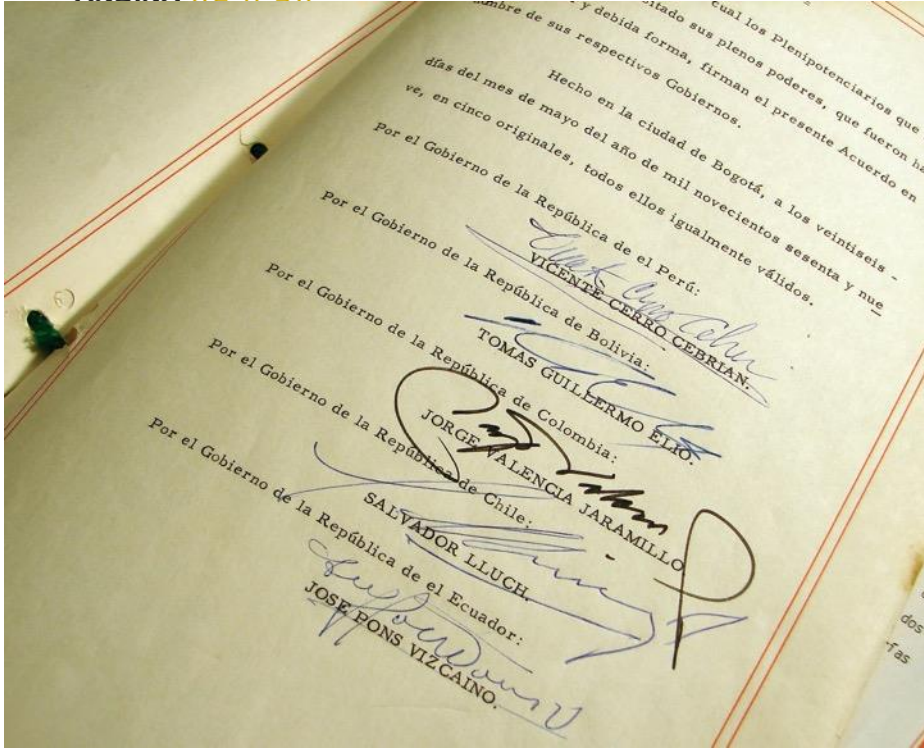 cual los Plenipotenciarios que
sus plenos poderes, que fueron
y debida forma, firman el presente Acuerdo en
de sus respectivos Gobiernos.
Hecho en la ciudad de Bogotá, a los veintiseis -
días del mes de mayo del año de mil novecientos sesenta y nue
ve, en cinco originales, todos ellos igualmente válidos.
Por el Gobierno de la República de el Perú:
VICENTE CERRO CEBRIAN.
Por el Gobierno de la República de Bolivia:
TOMAS GUILLERMO ELIO.
Por el Gobierno de la República de Colombia:
JORGE VALENCIA JARAMILLO
Por el Gobierno de la República de Chile:
SALVADOR LLUCH.
Por el Gobierno de la República de el Ecuador:
JOSE PONS VIZCAINO.
dos